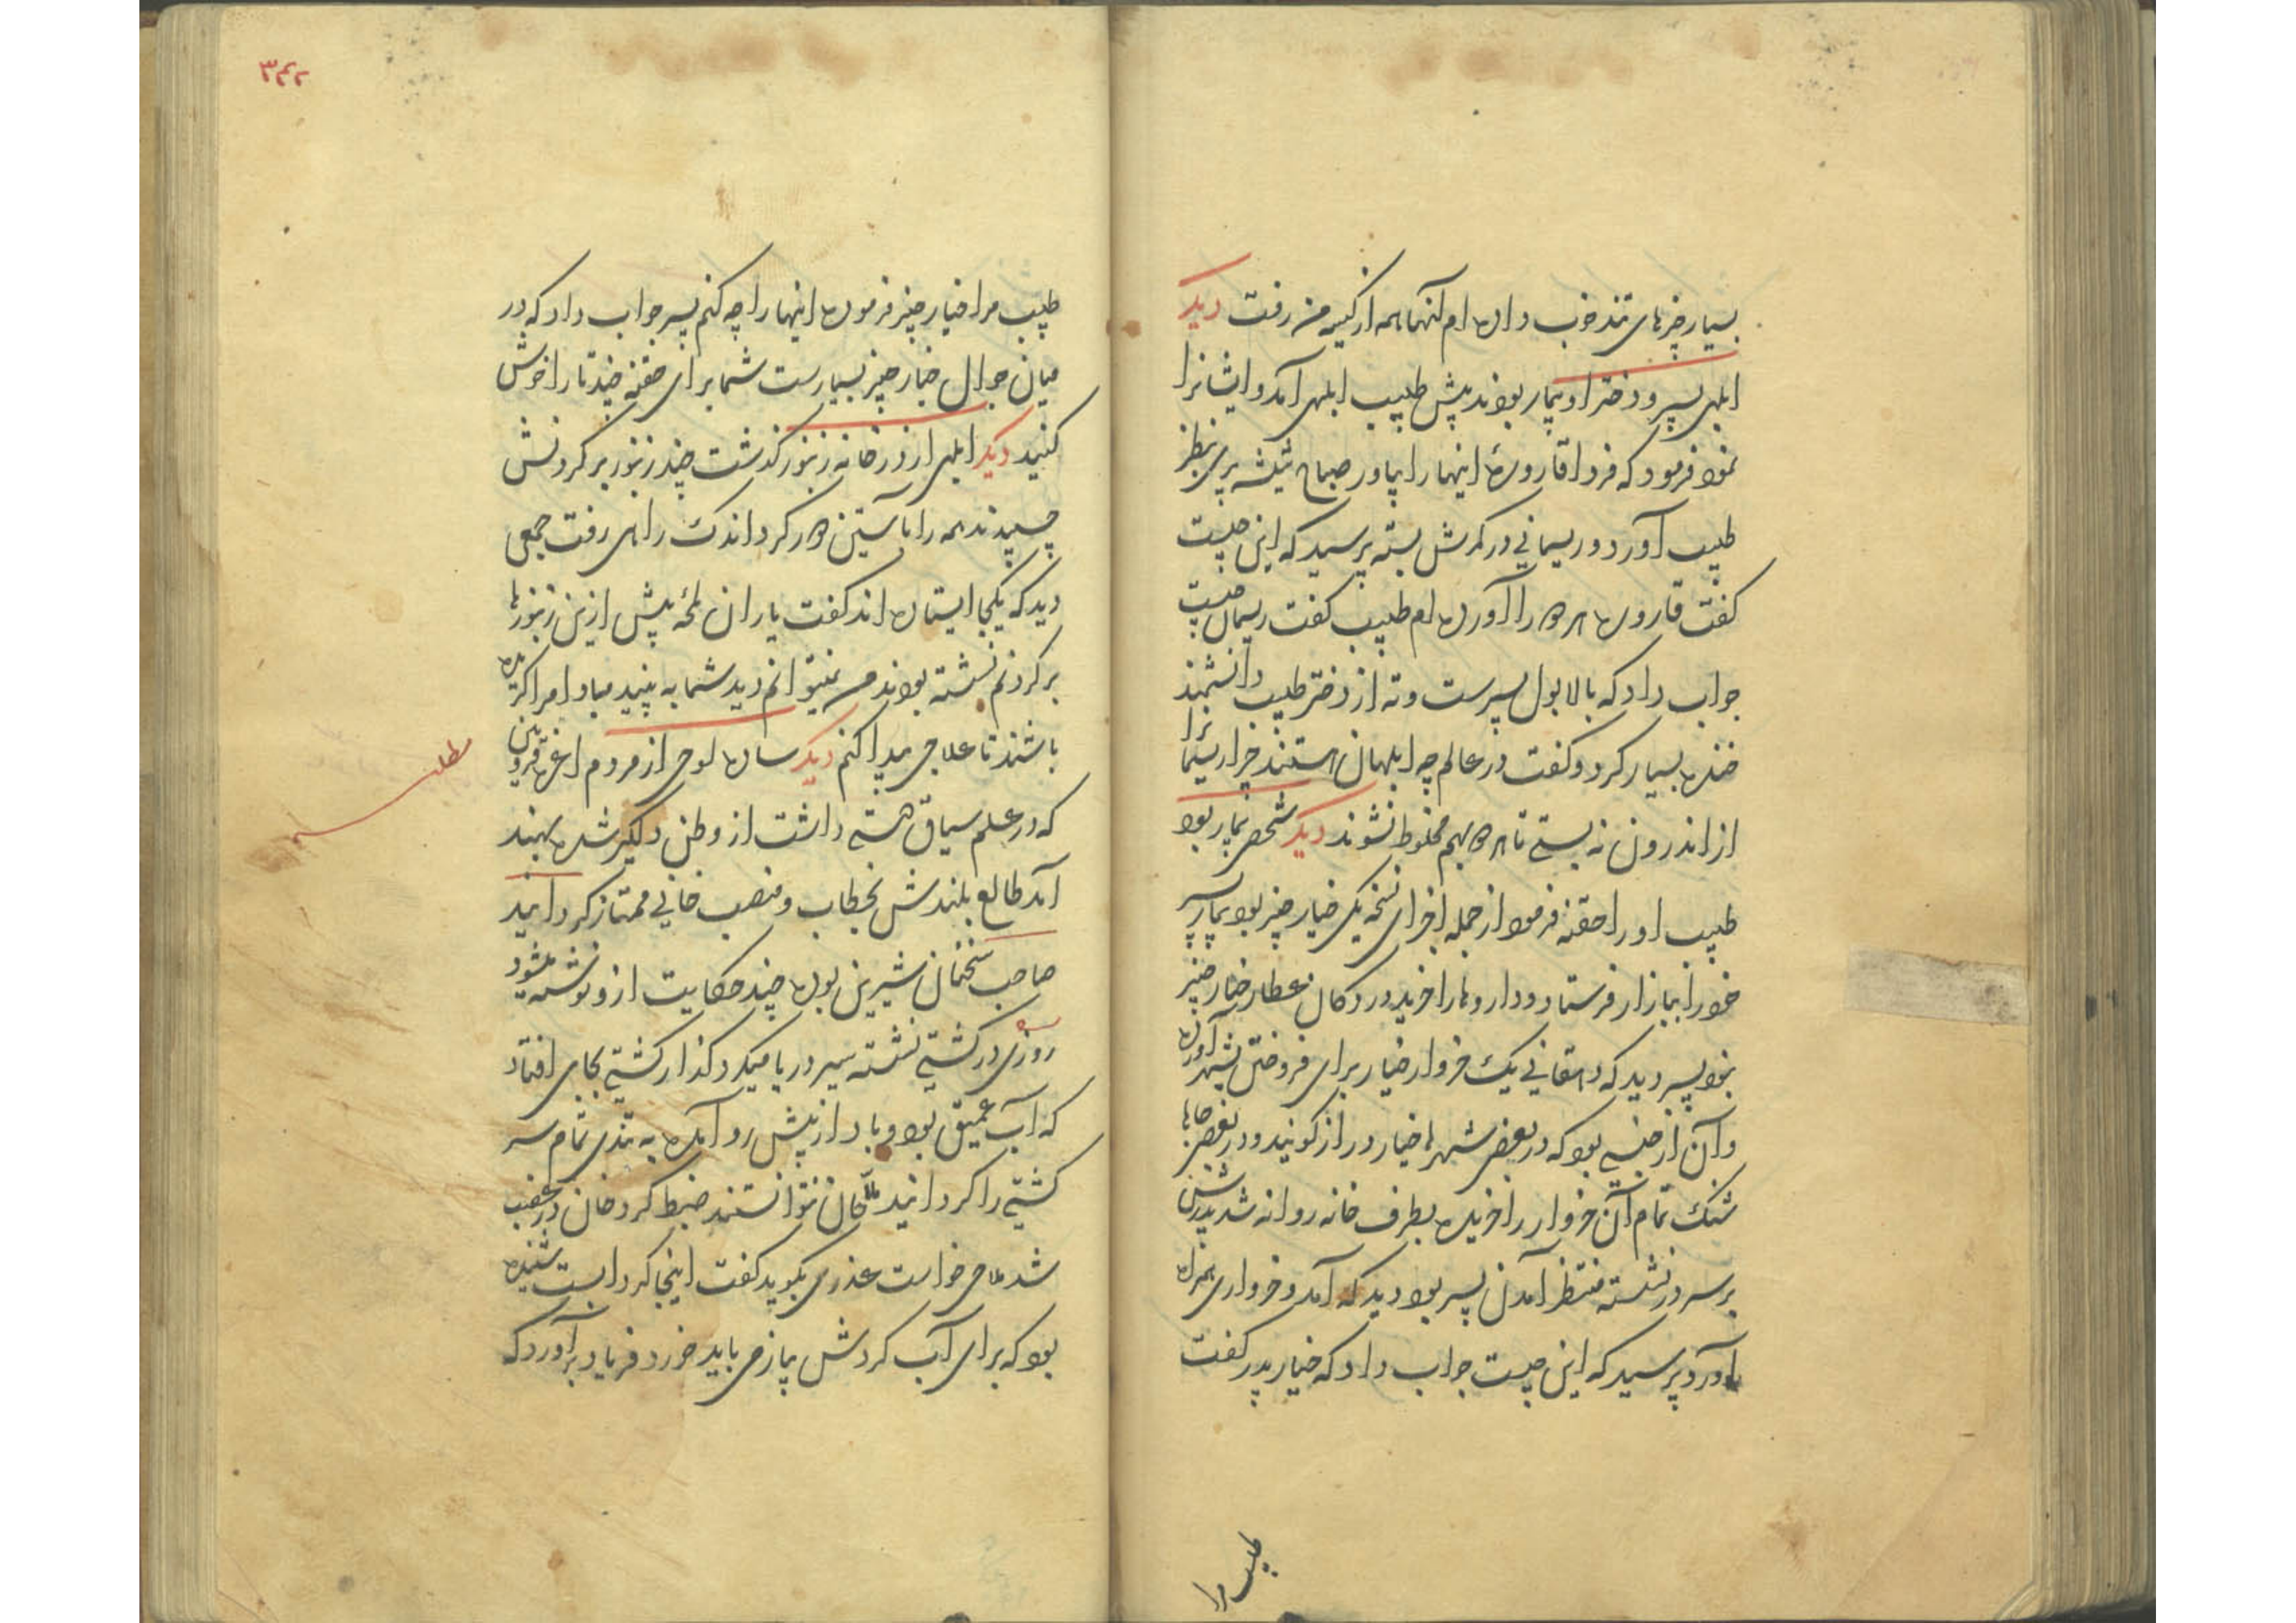 بسیار چیزهای تند خوب داده ام آنها همه از کیسه من رفت دیکر
ابلهی پسر و دختر او بیمار بودند پیش طبیب ابلهی آمد و ایشانرا
نمود فرمود که فردا قارورهٔ اینها را بیاور صباح شیشه پر بنظر
طبیب آورد و ریسمانی در کمرش بسته پرسید که این چیست
کفت قاروره هر دو را آورده ام طبیب کفت ریسمان چیست
جواب داد که بالا بول پسرست و ته از دختر طبیب دانشمند
خنده بسیار کرد و کفت در عالم چه ابلهان هستند چرا ریسمانرا
از اندرون نه بستی تا هر دو بهم مخلوط نشوند دیکر شخصی بیمار بود
طبیب او را حقنه فرمود از جمله اجزای نسخه یکی خیار چنبر بود بیمار پسر
خود را ببازار فرستاد و داروها را خرید در دکان عطار خیار چنبر
نبود پسر دید که دهقانی یک خروار خیار برای فروختن بشهر آورده
و آن از جنسی بود که در بعضی شهرها خیار دراز کویند و در بعضی جاها
شنک تمام آن خروار را خریده بطرف خانه روانه شد پدرش
بر سر در نشسته منتظر آمدن پسر بود دید که آمد و خرواری همراه
آورد پرسید که این چیست جواب داد که خیار پدر کفت
طبیب مرا
۳۴۲
طبیب مرا خیار چنبر فرموده اینها را چه کنم پسر جواب داد که در
میان جوال خیار چنبر بسیارست شما برای حقنه چند تا را خوش
کنید دیکر ابلهی از در خانه زنبور کذشت چند زنبور بر کردنش
چسپیدند همه را با آستین دور کرد اندک راهی رفت جمعی
دید که یکجا ایستاده اند کفت یاران لمحهٔ پیش ازین زنبورها
بر کردنم نشسته بودند من نمیتوانم دید شما به بینید مبادا مرا کزیده
باشند تا علاجی پیدا کنم دیکر ساده لوحی از مردم اغره قزوین
که در علم سیاق دستی داشت از وطن دلکیر شده بهند
آمد طالع بلندش بخطاب و منصب خانی ممتاز کردانید
صاحب سخنان شیرین بوده چند حکایت ازو نوشته میشود
روزی در کشتی نشسته سیر دریا میکرد کذار کشتی بجای افتاد
که آب عمیق بود و باد از پیش رو آمده به تندی تمام سر
کشتی را کردانید ملاحان نتوانستند ضبط کرد خان در غضب
شد ملاحی خواست عذری بکوید کفت اینجا کردابست شنیده
بود که برای آب کردش پیاز می باید خورد فریاد برآورد که
مطلب